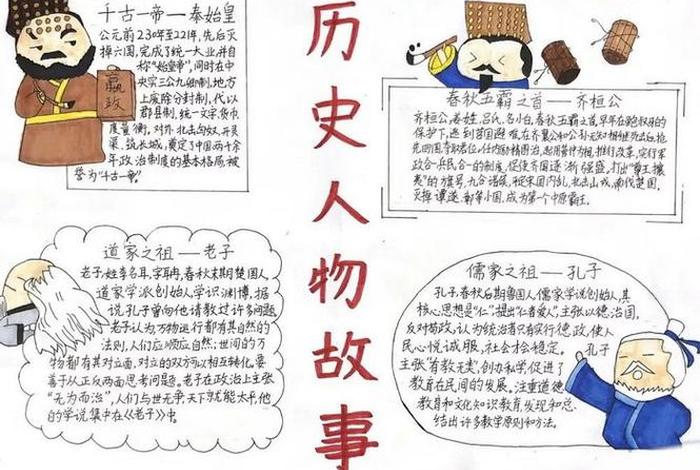 历史人物故事
千古一帝—秦始皇
公元前230年至221年,先后灭
掉六国,完成了统一大业,并自
称“始皇帝”,同时在中
央实三公九卿制,地方
上废除分封制,代以
郡县制,统一文字货币
度量衡,对外北击匈奴,开灵
渠,筑长城,奠定了中国两千余
年政治制度的基本格局被
誉为“千古一帝”。
嬴政
春秋五霸之首——齐桓公
齐桓公,姜姓,吕氏,名小白,春秋五霸之首,早年在鲍叔牙的
保护下,逃到莒国避难,在齐襄公和公孙无知相继死去后,抢
先回国夺取君位,任内励精图治,起用管仲为相,推行改革,实行军
政合一兵民合一的制度,促使齐国逐渐强盛,打出“尊王攘
夷”的旗号,九合诸侯,平定宋国内乱,北击山戎,南伐楚国,
灭掉谭遂、鄣等小国,成为第一个中原霸主。
道家之祖——老子
老子,姓李名耳,字聃冉,春秋末期楚国人,
道家学派创始人,学识渊博,据
说孔子曾向他请教过许多问题
老子认为万物运行都有其自然的
法则,人们应顺应自然;世间的万
物都有其对立面,对立的双方可以相互转化,要
善于从正反两面思考问题。老子在政治上主张
“无为而治”,人们与世无争天下就能太平,他
的学说集中在《老子》中。
儒家之祖——孔子
孔子,春秋后期鲁国人,儒家学说创始人,其
核心思想是“仁”,提出“仁者爱人”,主张以德治国,
反对苛政,认为统治者只有实行德政,使人
民心悦诚服,社会才会稳定。
主张“有教无类”,创办私学,促进了
教育在民间的发展。注重道德
教育和文化知识教育,发现和总
结出许多教学原则和方法。
孔子